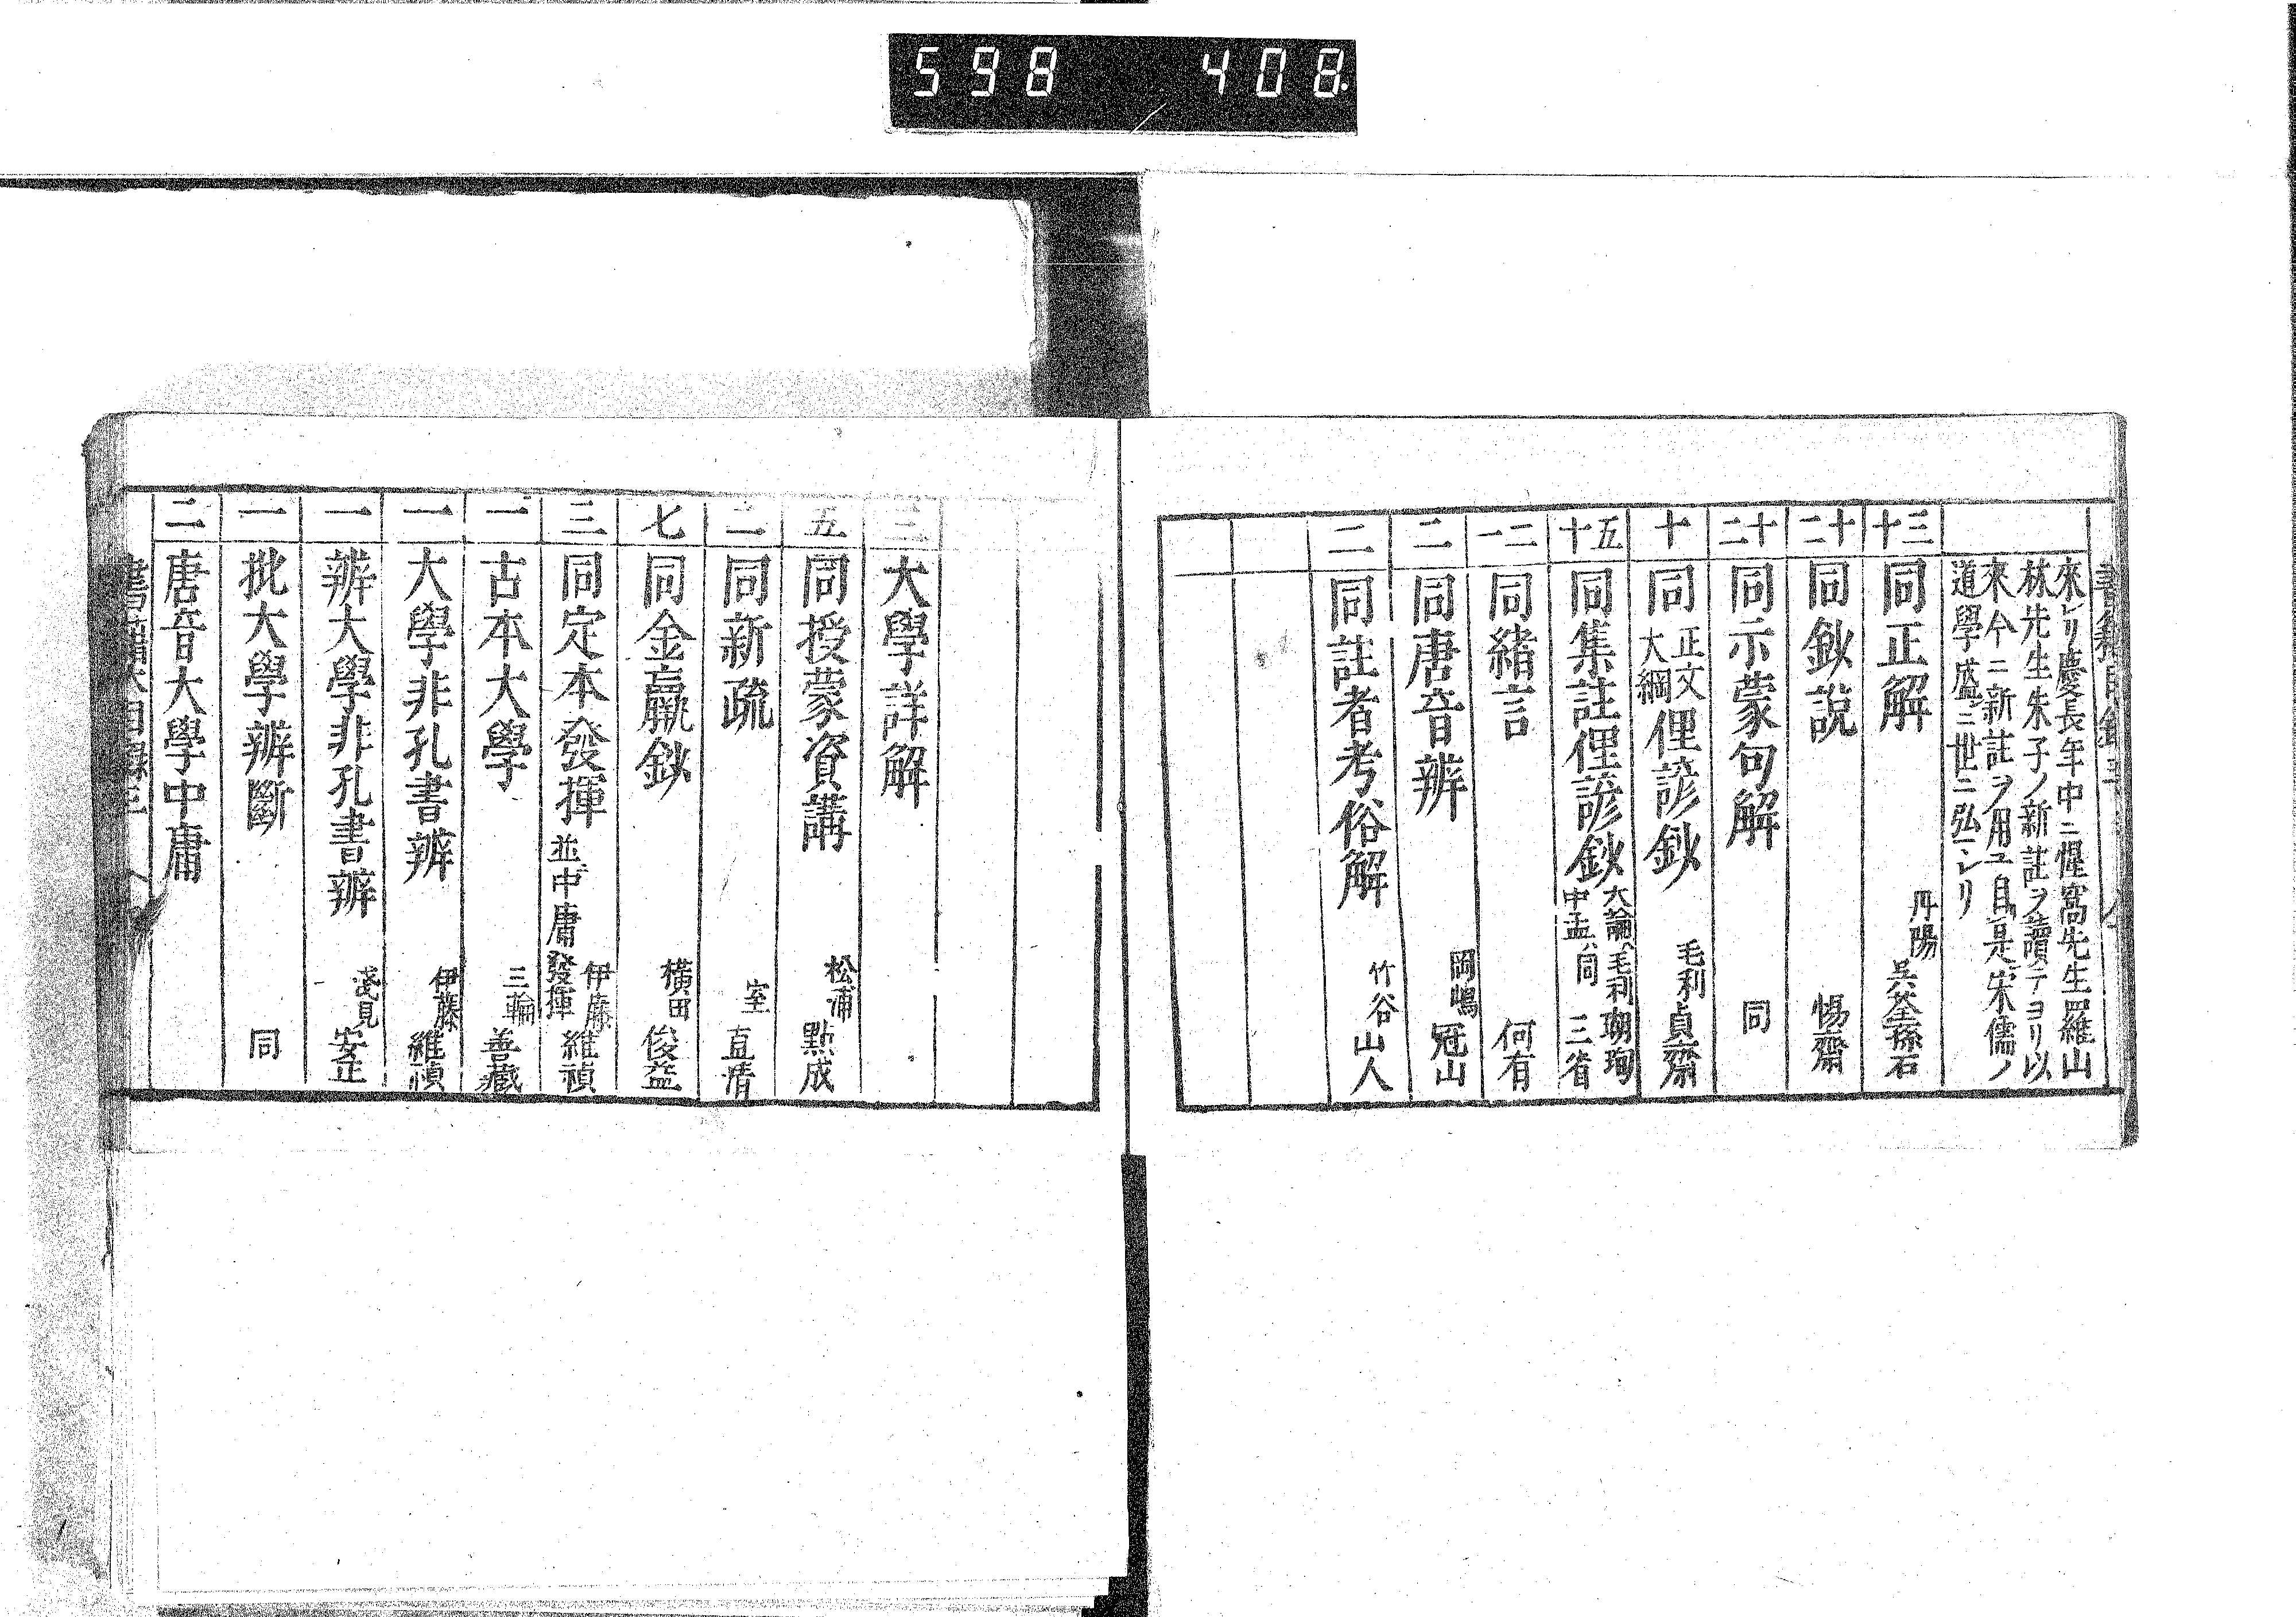 598 408
來レリ慶長年中ニ惺窩先生羅山
林先生朱子ノ新註ヲ讀テヨリ以
來今ニ新註ヲ用ユ自是宋儒ノ
道學盛ニ世ニ弘レリ
十三 同正解 丹陽 呉荃蓀石
二十 同鈔説 惕齋
二十 同示蒙句解 同
十 同 正文 大綱 俚諺鈔 毛利貞齋
十五 同集註俚諺鈔 大論ハ毛利瑚珣 中孟ハ同 三省
一二 同緒言 何有
二 同唐音辨 岡嶋 冠山
二 同註者考俗解 竹谷山人
三 大學詳解
五 同授蒙資講 松浦 黙成
二 同新疏 室 直清
七 同金羸鈔 横田 俊益
三 同定本發揮 並ニ中庸發揮 伊藤 維禎
一 古本大學 三輪 善藏
一 大學非孔書辨 伊藤 維禎
一 辨大學非孔書辨 淺見 安正
一 批大學辨斷 同
二 唐音大學中庸